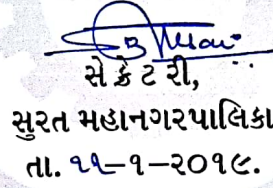 સેક્રેટરી,
સુરત મહાનગરપાલિકા
તા. ૧૧–૧–૨૦૧૯.